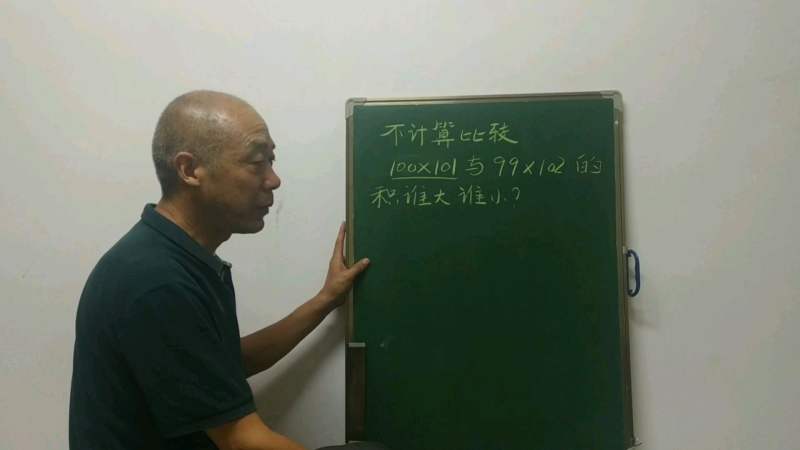 不计算比较
100×101与99×102的
积谁大谁小?